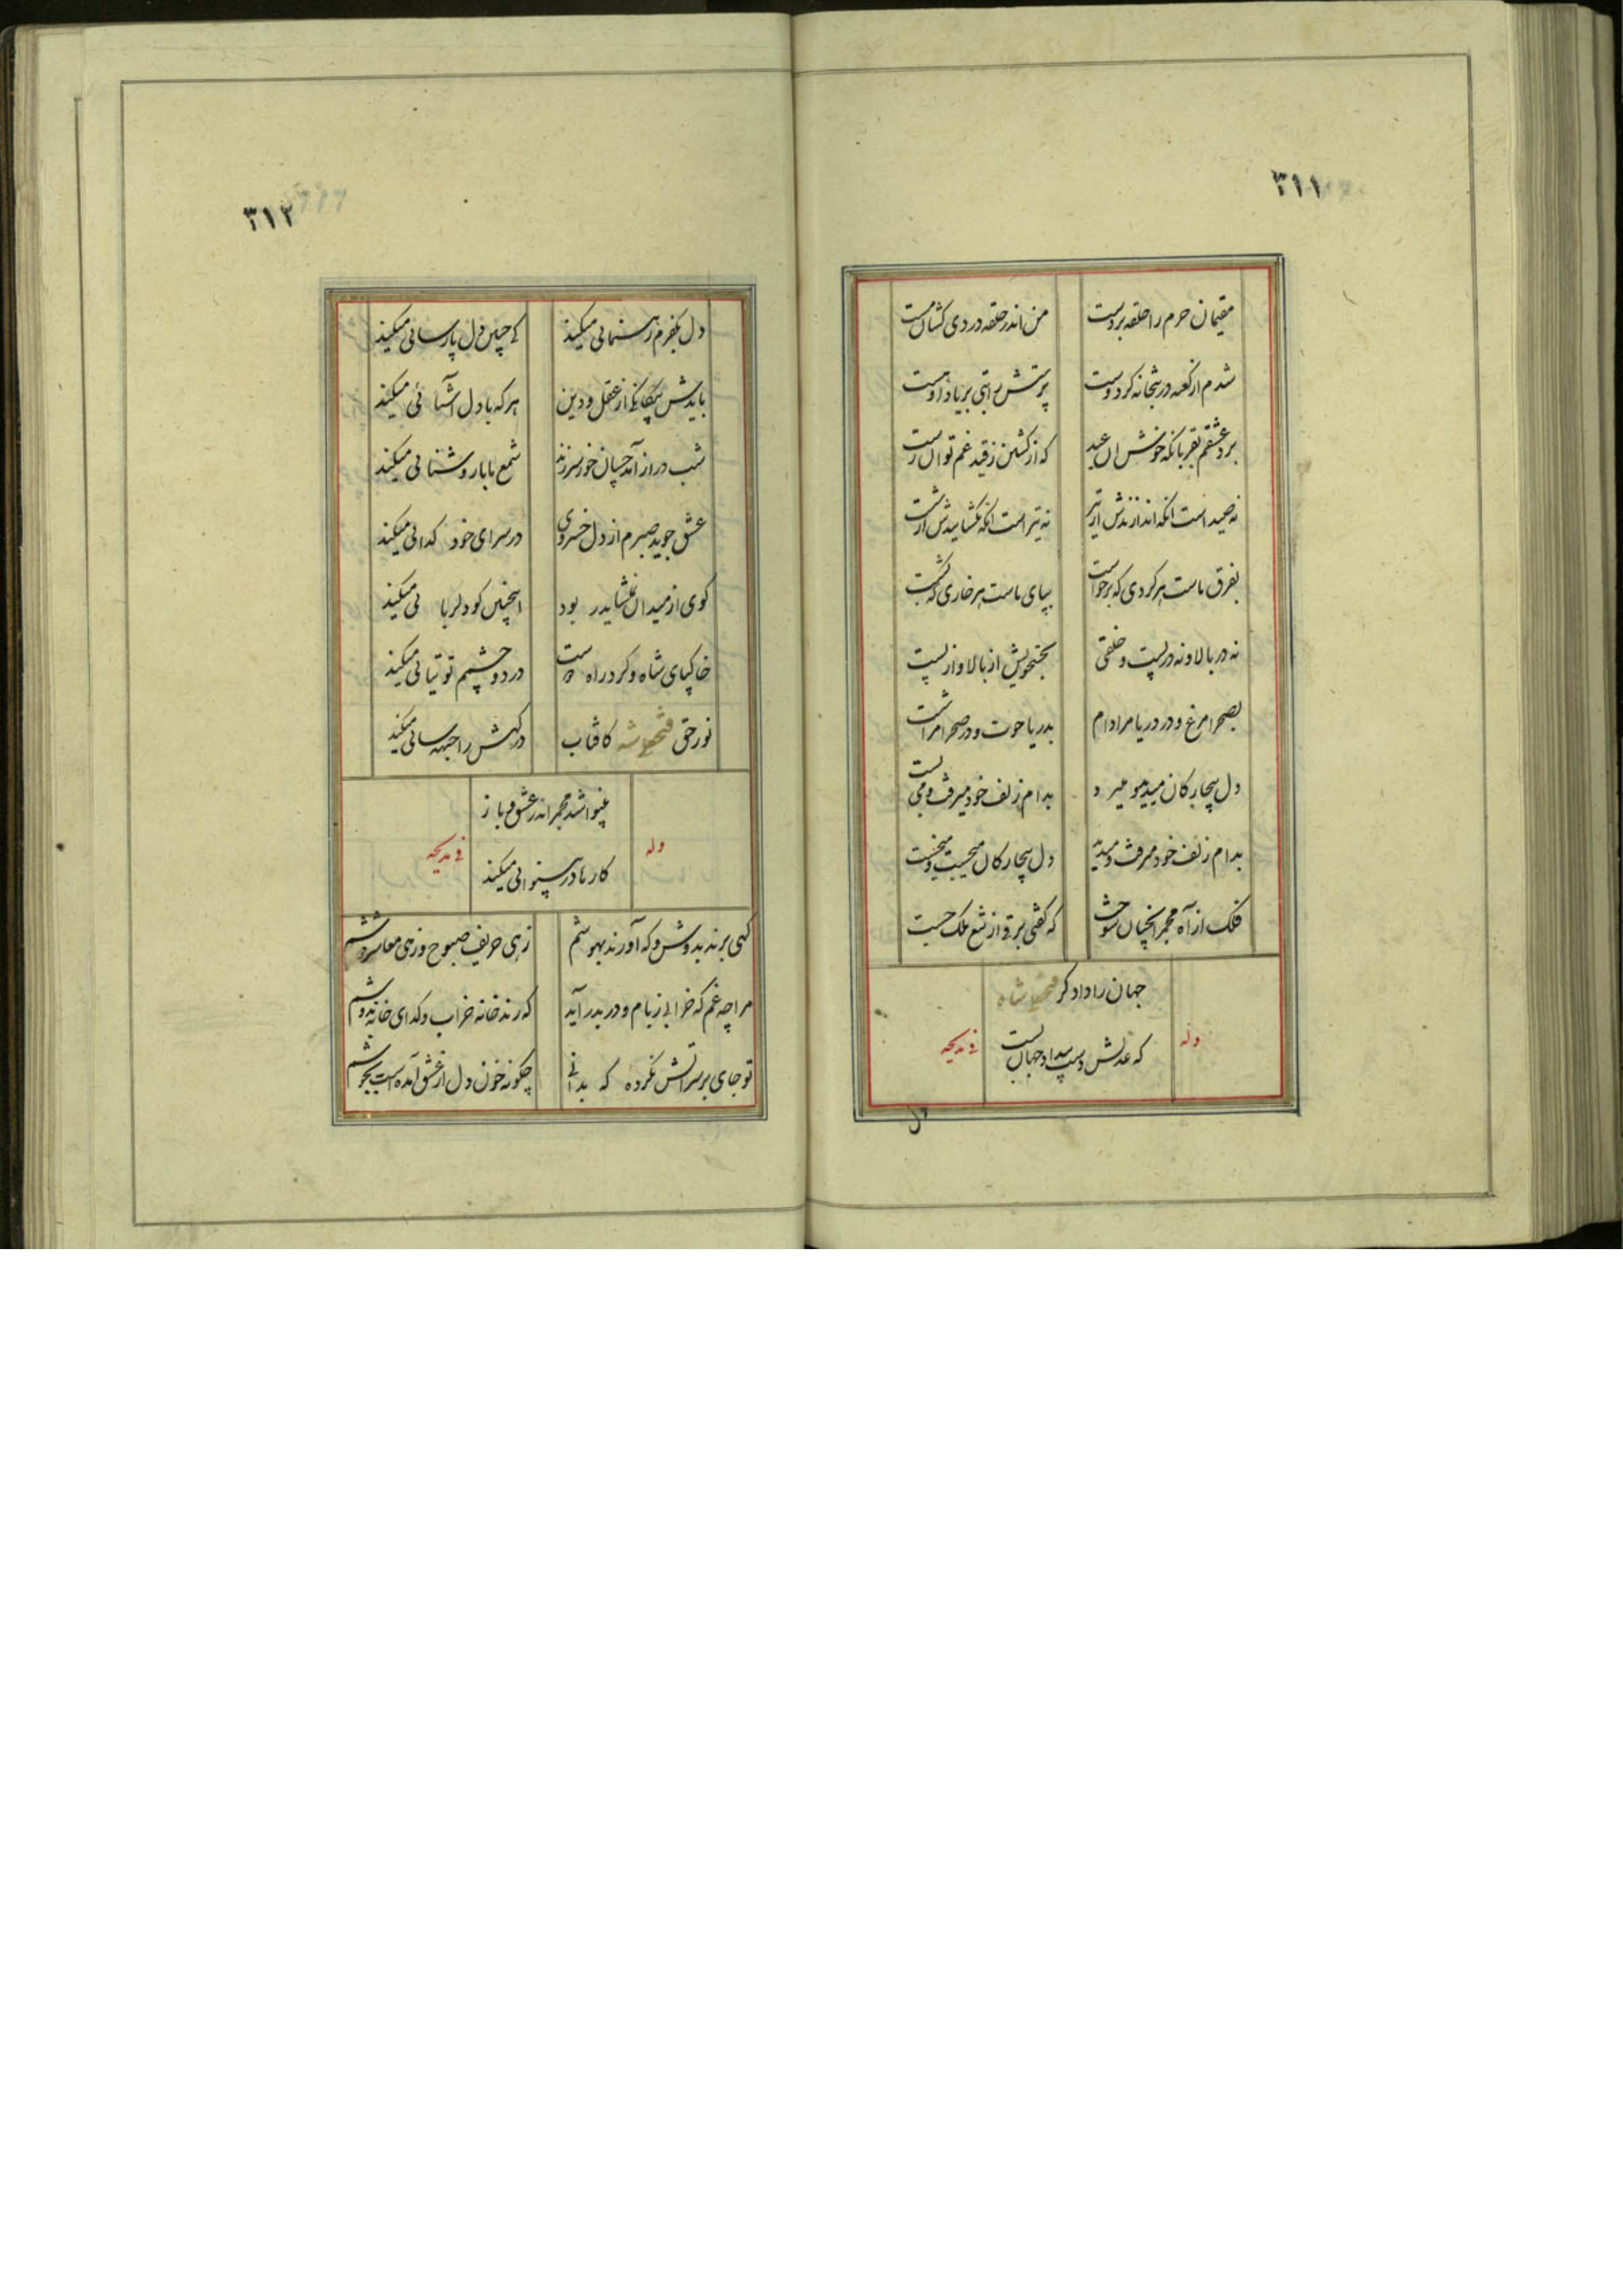 ۳۱۱
مقیمان حرم را حلقه بر دست
من اندر حلقه دردی کشان مست
شدم از کعبه در بتخانه کز دوست
پرستش را بتی بر یاد او هست
برد عشقم بقربانگه خوش آن عید
که از کشتن ز قید غم توان رست
نه صید است انکه اندازندش از تیر
نه تیر است انکه بگشایندش از شست
بفرق ماست هر گردی که برخواست
بپای ماست هر خاری که بشکست
نه در بالا و نه در پست و خلقی
بجستجویش از بالا و از پست
بصحرا مرغ و در دریا مرا دام
بدریا حوت و در صحرا مرا شست
دل بیچارگان میدید و میبرد
بدام زلف خود میرفت و می بست
بدام زلف خود میرفت و میدید
دل بیچارگان میجست و میخست
فلک از آه مجمر آنچنان سوخت
که گفتی برقی از تیغ ملک جست
جهان را دادگر فتحعلیشاه
که عدلش دست بیداد جهان بست
وله
فی مدیحه
دل
۳۱۲
دل بکفرم رهنمائی میکند
کی چنین دل پارسائی میکند
بایدش بیگانگی از عقل و دین
هر که با دل آشنائی میکند
شب دراز آمد چسان خور سر زند
شمع ما با روشنائی میکند
عشق جوید صبرم از دل خسروی
در سرای خود گدائی میکند
گوی از میدان خورشید در بود
اینچنین کو دلربائی میکند
خاکپای شاه و گرد راه اوست
در دو چشمم توتیائی میکند
نور حق فتحعلی شه کافتاب
درگهش را جبهه سائی میکند
بینوا شد مجمر اندر عشق و باز
کارها در بینوائی میکند
وله
فی مدیحه
گهی برند بدوشم و گه آورند بهوشم
زهی حریف صبوح و زهی معاشر دوشم
مرا چه غم که خرابی ز بام و در بدر آید
که رند خانه خراب و گدای خانه بدوشم
تو جای بر سر آتش نکرده که بدانی
چگونه خون دل از عشق آمده است بجوشم